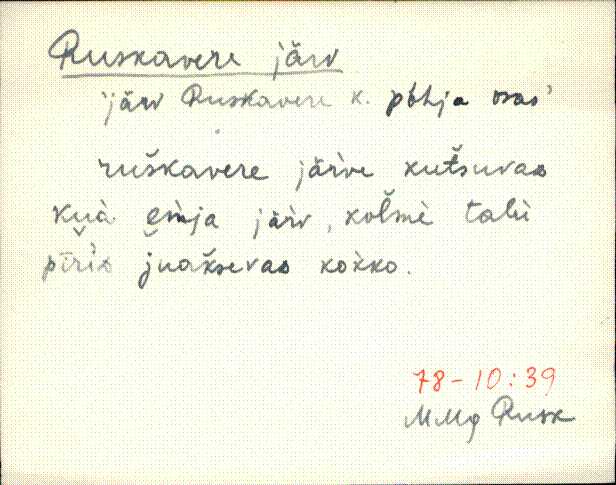 Ruskavere järv
'järv Ruskavere k. põhja osas'
ruškavere järve kutšuvaᴅ
kuà emja järv, kolmè talu
pīriᴅ kokko.
78-10:39
MMg Rusk